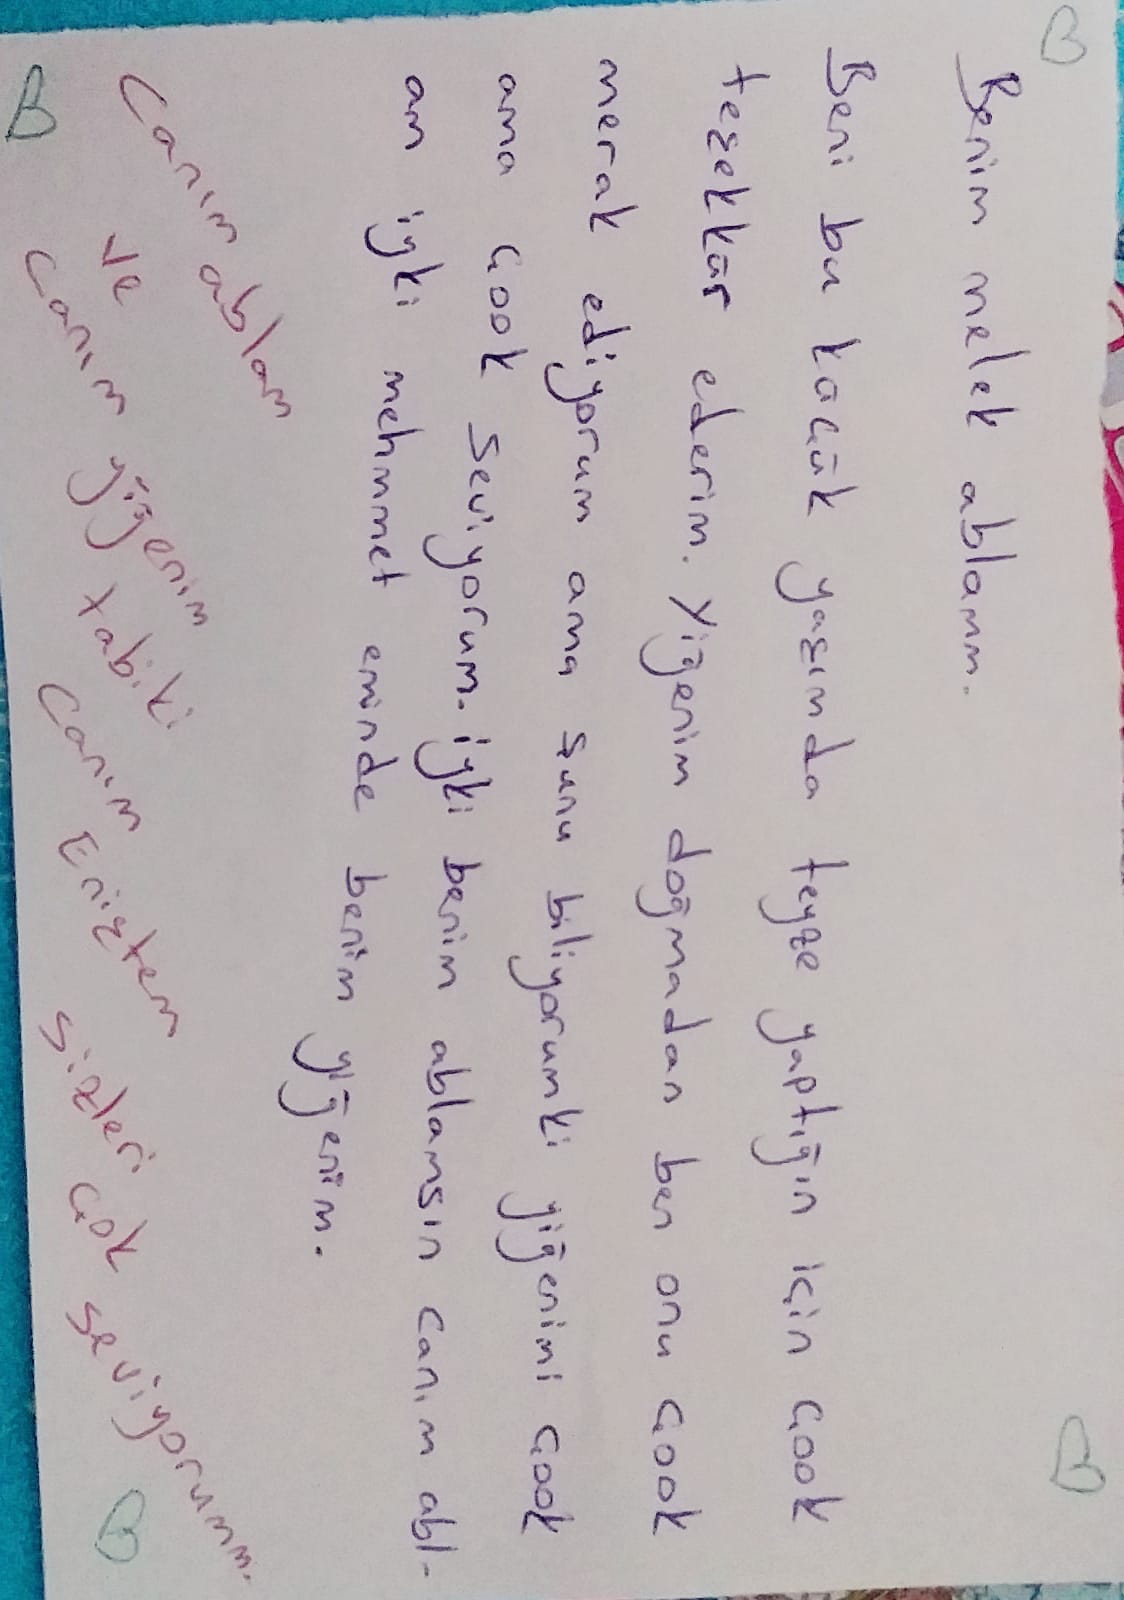 Benim melek ablamm.
Beni bu küçük yaşımda teyze yaptığın için çook
teşekkür ederim. Yiğenim doğmadan ben onu çook
merak ediyorum ama şunu biliyorumki yiğenimi çook
ama çook seviyorum. iyki benim ablamsın canım abl-
am iyki mehmmet eminde benim yiğenim.
Canım ablam
ve
Canım yiğenim
tabiki
Canım Eniştem
sizleri çok seviyorumm.